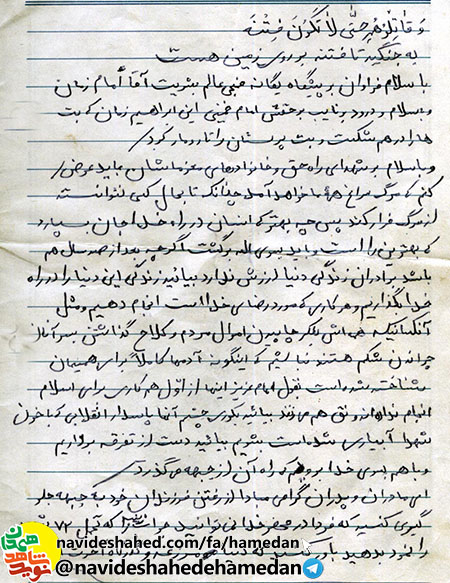 وَ قَاتِلُوهُمْ حَتَّى لَا تَكُونَ فِتْنَةٌ
به جنگید تا فتنه بر روی زمین هست
با سلام فراوان بر پیشگاه یگانه منجی عالم بشریت آقا امام زمان
و سلام و درود بر نایب برحقش امام خمینی این ابراهیم زمان که بت
ها را درهم شکست و بت پرستان را تارومار کرد
و با سلام بر شهدای راه حق و خانواده های معزز شان باید عرض
کنم که مرگ سراغ همه ما خواهد آمد چنانکه تا بحال کسی نتوانسته
از مرگ فرار کند پس چه بهتر که انسان در راه خدا جان بسپارد
که بهترین راه است و باید بسوی الله برگشت اگر چه بعد از صد سال هم
باشد برادران زندگی دنیا ارزش ندارد بیائید زندگی این دنیا را در راه
خدا بگذاریم و هر کاری که مورد رضای خدا است انجام دهیم و مثل
آنکسانیکه همه اش بفکر چاپیدن اموال مردم و کلاه گذاشتن بسر آنان
چراندن شکم هستند نباشیم که اینگونه آدمها کاملاً برای همیمان
شناخته شده است بقول امام عزیز اینها از اول هم کاری برای اسلام
انجام نداده اند و هم می زنند بیائید بکوری چشم آنها پاسدار انقلابی که با خون
شهدا آبیاری شده است بشویم بیائید دست از تفرقه برداریم
و با هم بسوی خدا برویم که راه آن از جبهه می گذرد
ای مادران و پدران گرامی مبادا از رفتن فرزندان خود به جبهه جلو
گیری کنید که فردا در محضر خدا نمی توانید جواب زینب را که تحمل ۷۲
را نمود بدهید باور کنید که دنیا
navideshahed.com/fa/hamedan
@navideshahedehamedan
نوید شاهد همدان